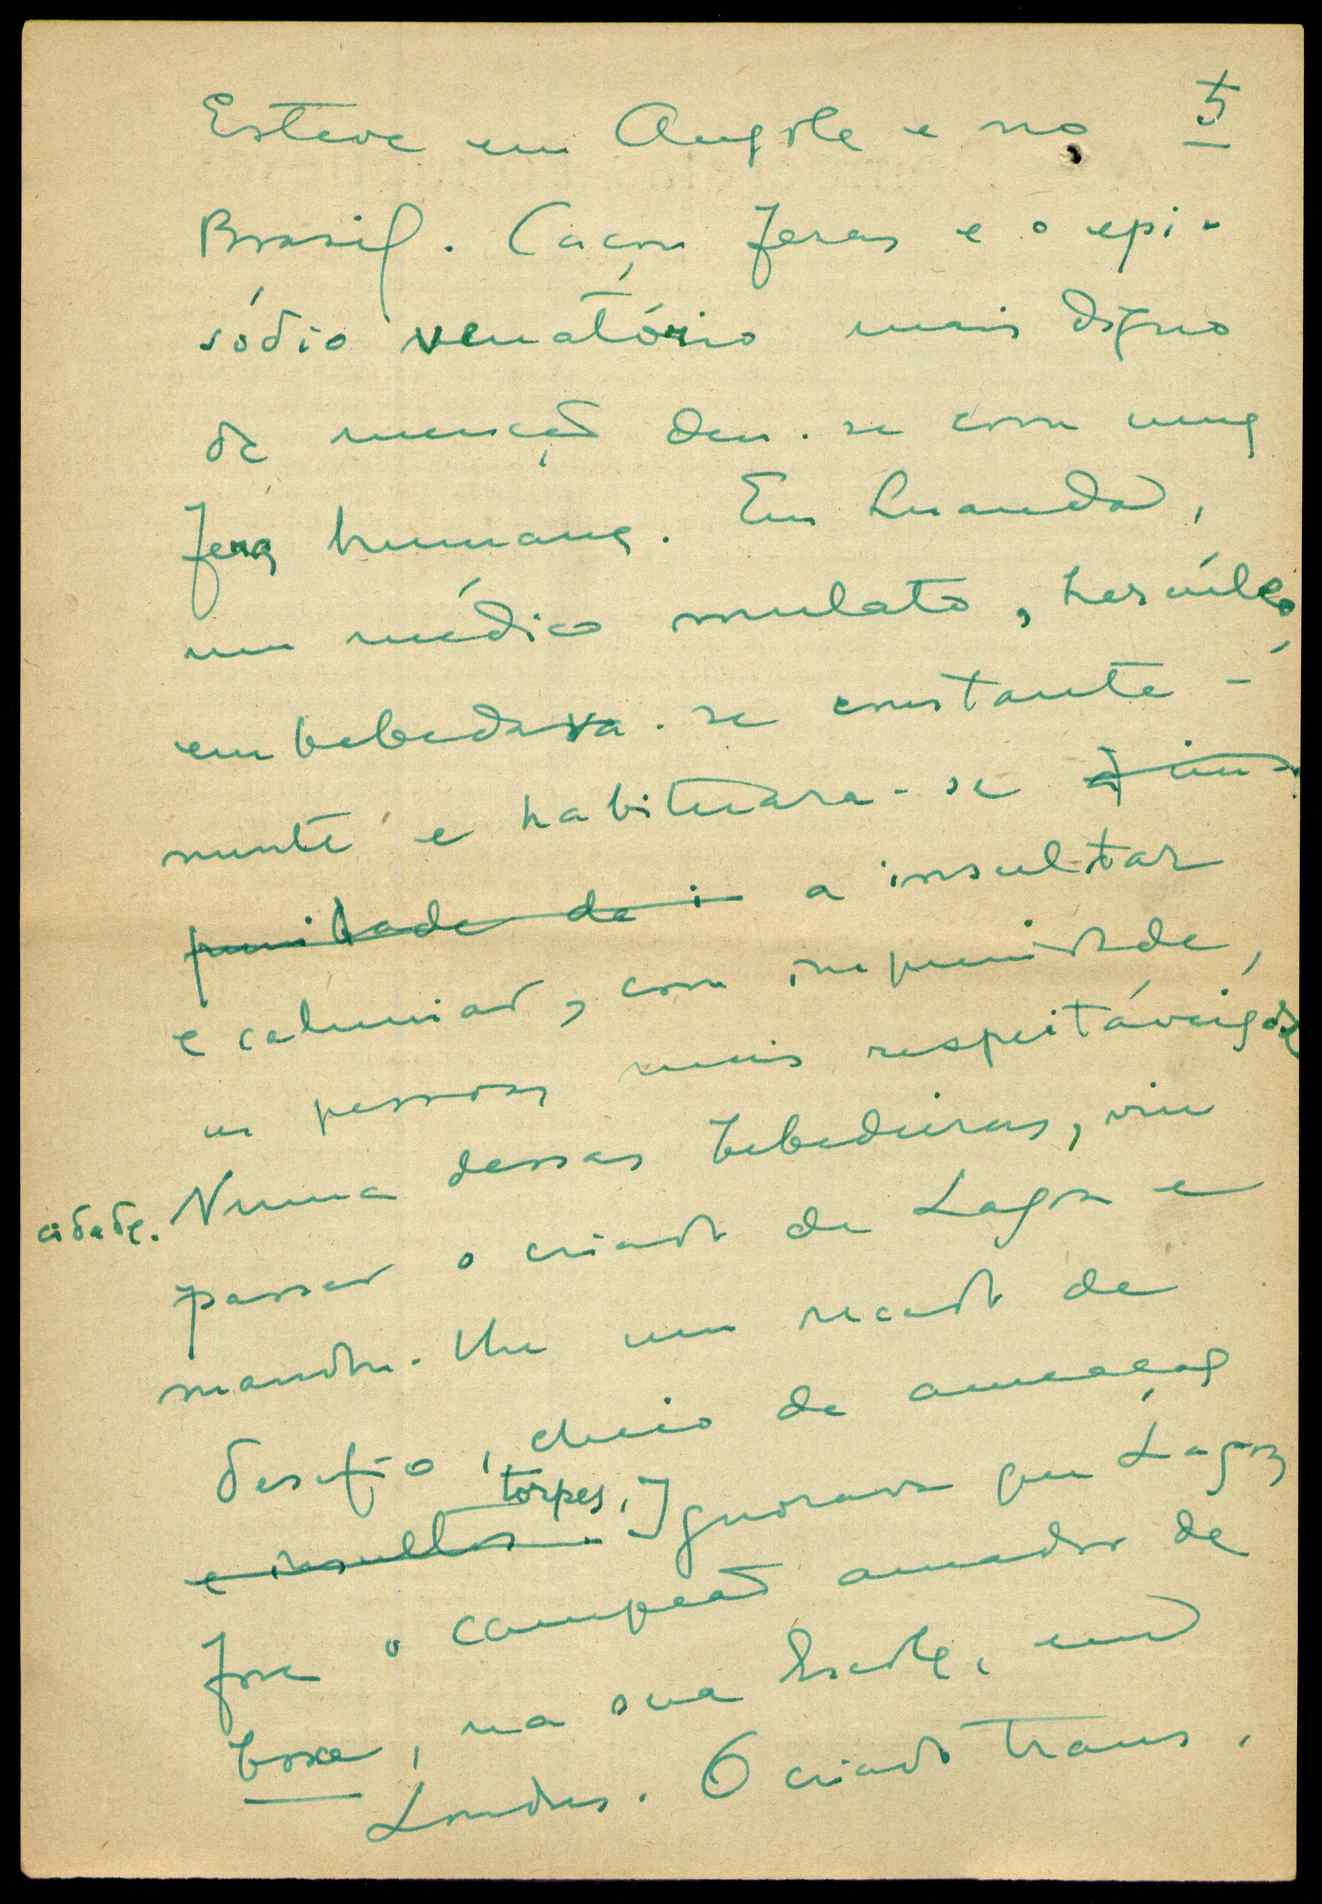 5
Esteve em Angola e no
Brasil. Caçou feras e o epi-
sódio venatório mais digno
de menção deu-se com uma
fera humana. Em Luanda,
um médico mulato, hercúleo,
embebedava-se constante-
mente e habituara-se à im-
punidade de i a insultar
e caluniar, com impunidade,
as pessoas mais respeitáveis da
cidade. Numa dessas bebedeiras, viu
passar o criado de Lagoa e
mandou-lhe um recado de
desafio, cheio de ameaças
torpes.
e insultos. Ignorava que Lagoa
fora o campeão amador de
boxe, na sua Escola, em
Londres. O criado trans-